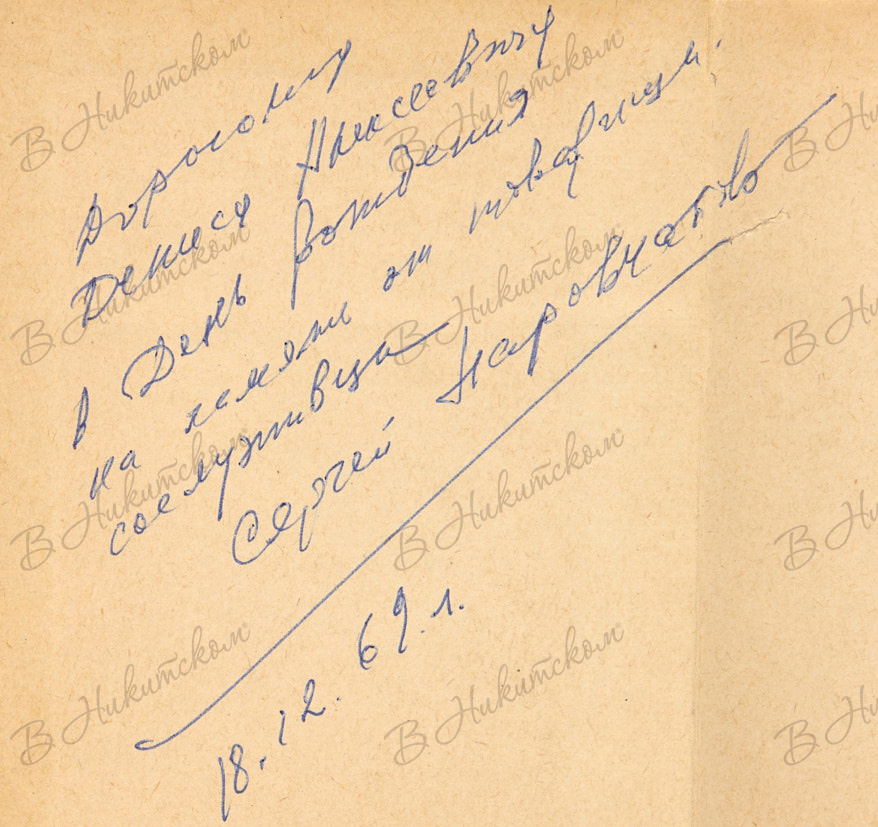 Дорогому
Денису Алексеевичу
в День рождения
на память от товарища.
сослуживца
Сергей Наровчатов
18.12.69 г.
В Никитском
В Никитском
В Никитском
В Никитском
В Никитском
В Никитском
В Никитском
В Никитском